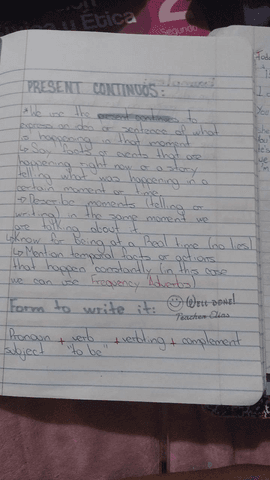 y Ética
2
Segundo
PRESENT CONTINUOS:
• We use the present continuos to
express an idea or sentence of what
is happening in that moment
↳ Say facts or events that are
happening right now or a story
telling what was happening in a
certain moment or time.
↳ Describe moments (telling or
writing) in the same moment we
are talking about it
↳ Know for being at a Real time (no lies)
↳ Mention temporal facts or actions
that happen constantly (in this case
we can use Frequency Adverbs)
Form to write it:
WELL DONE!
Teacher
Pronoun + verb + verbIing + complement
subject "to be"